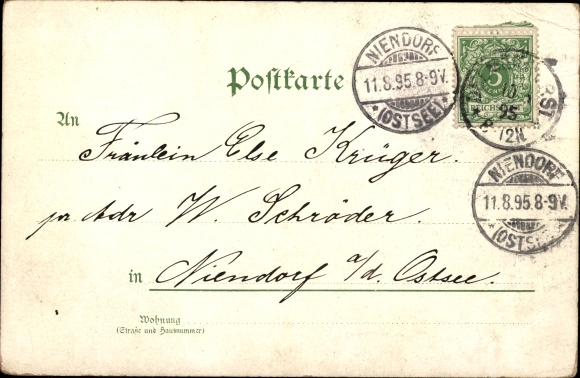 NIENDORF
11.8.95.8-9V.
*(OSTSEE)*
5
REICHSPOST
10
95
8-
12N.
Postkarte
An
Fräulein Else Krüger.
pr. Adr W. Schröder.
in Niendorf a/d. Ostsee.
NIENDORF
11.8.95.8-9V.
*(OSTSEE)*
Wohnung
(Straße und Hausnummer)